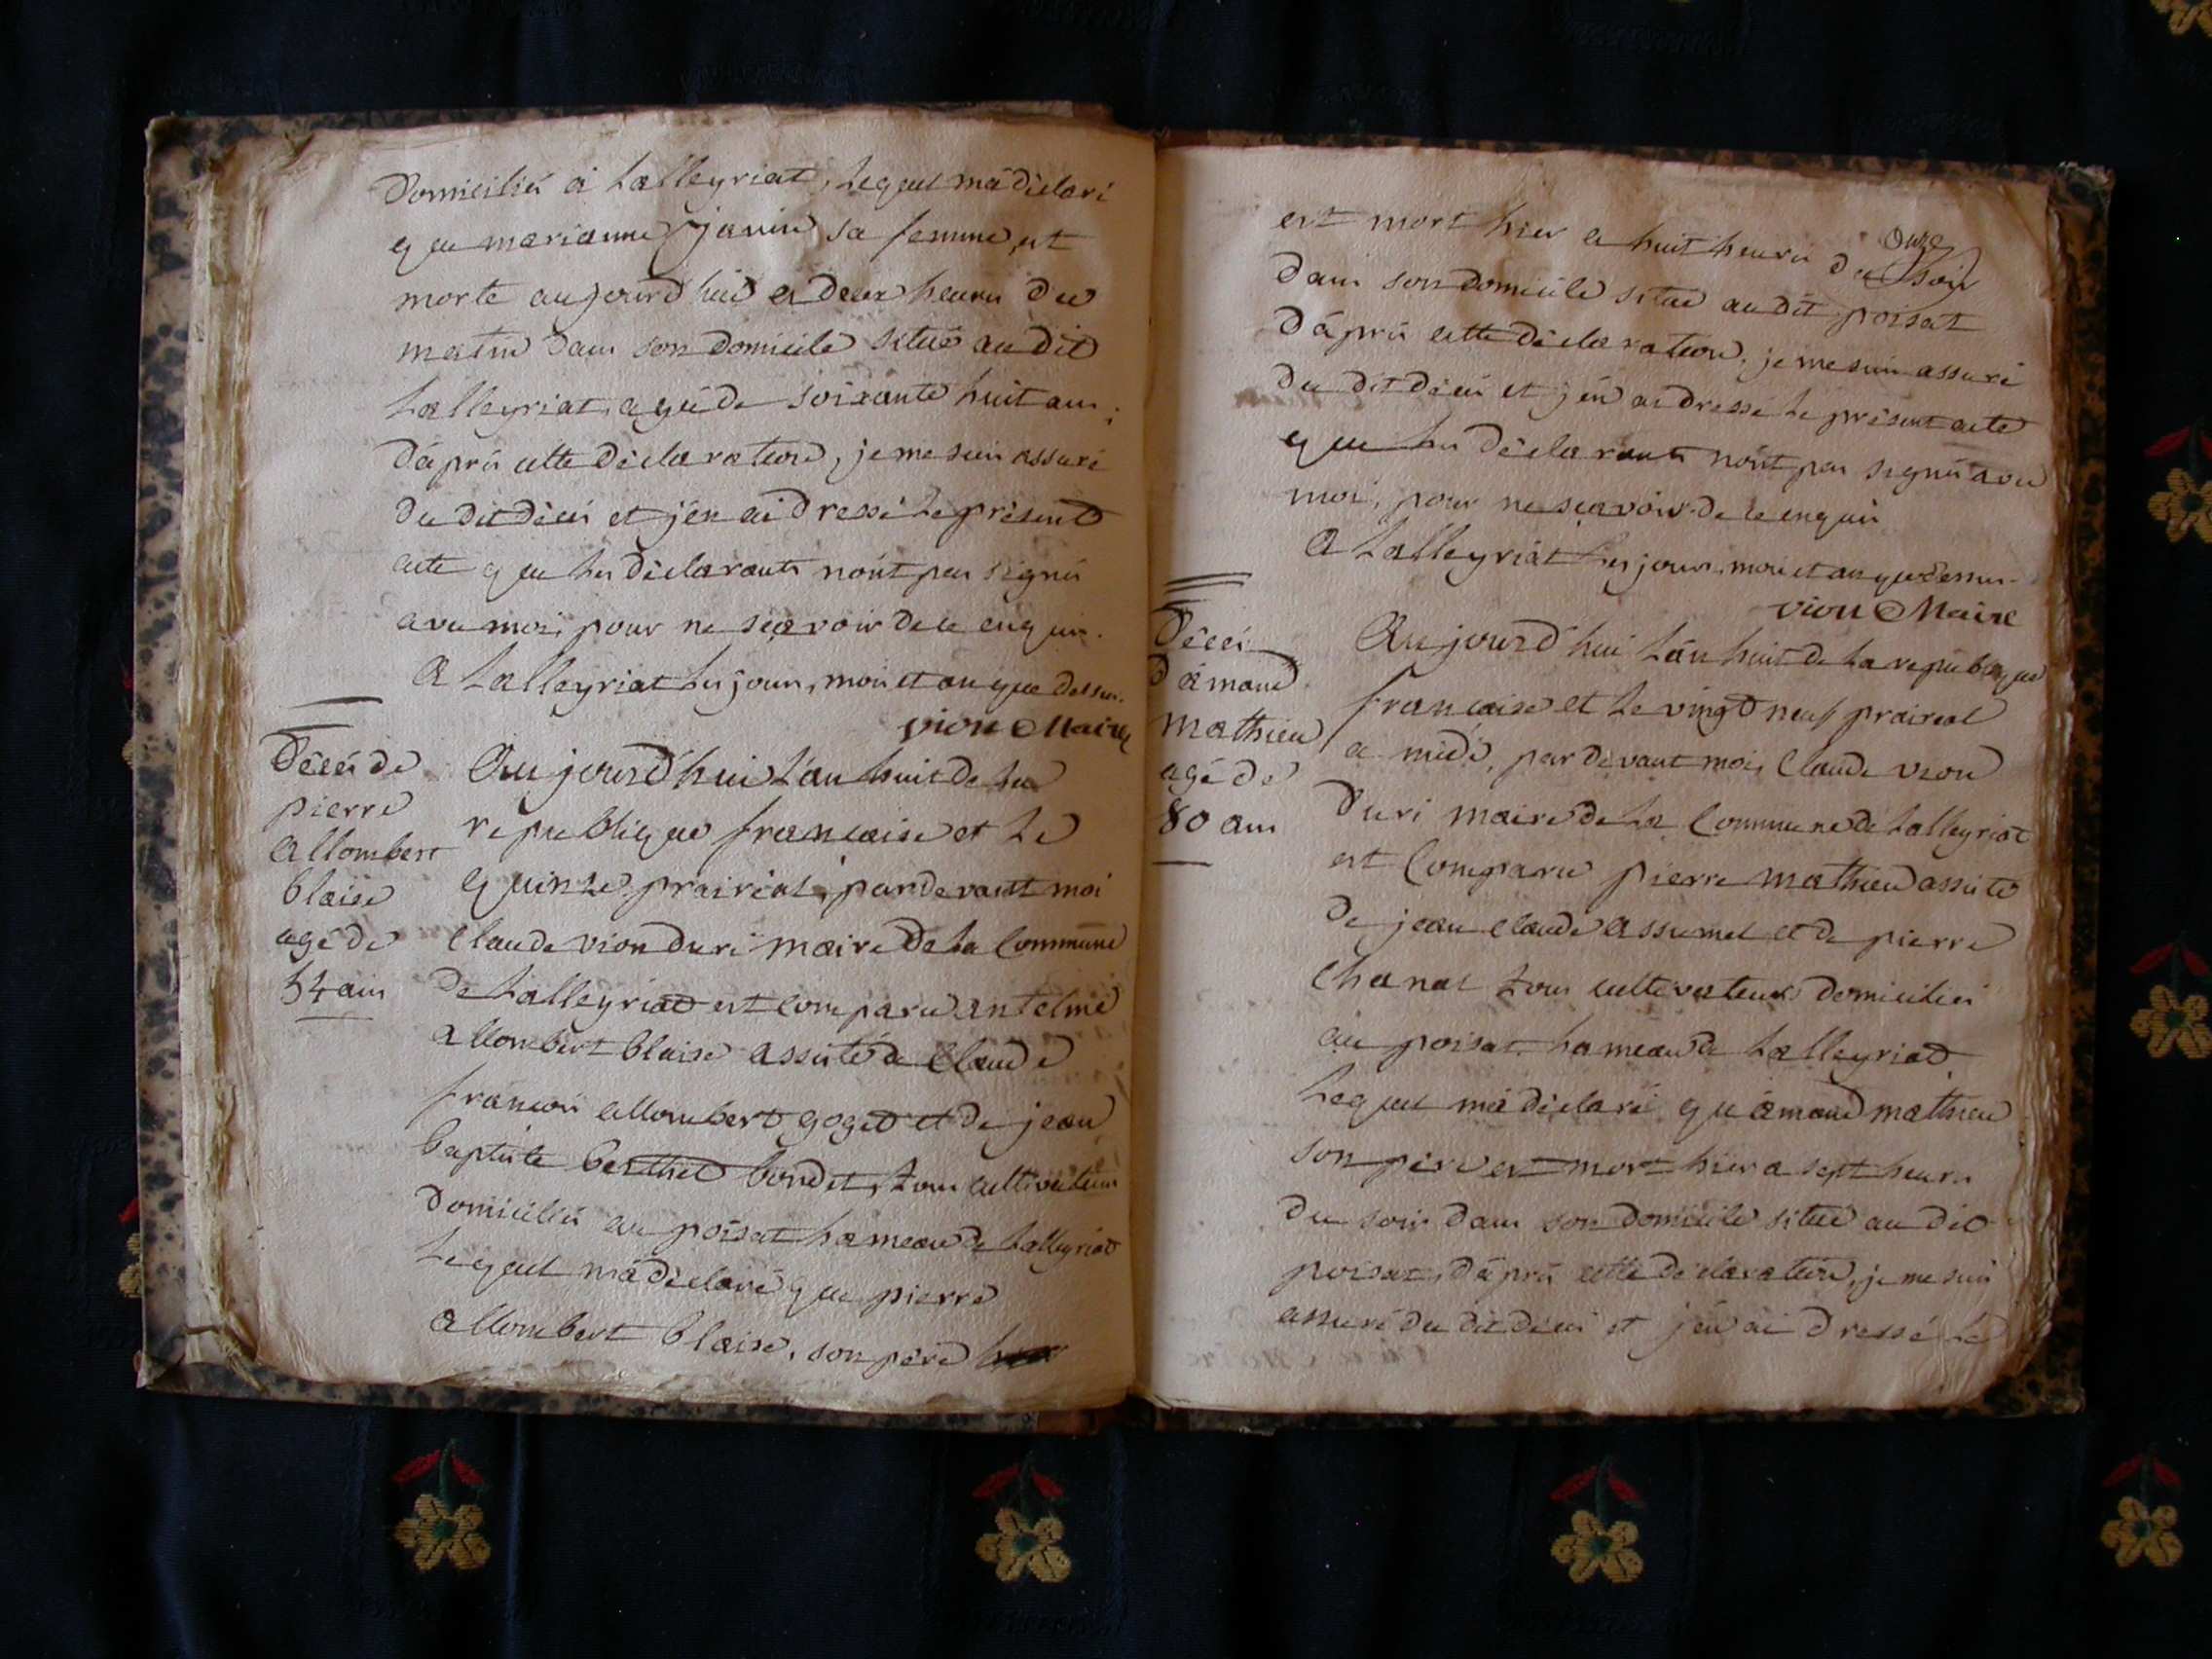 Domiciliés á Lalleyriat, Lequel má déclaré
que marianne janin sa femme, est
morte aujourd'hui a deux heures du
matin dans son domicile situé audit
Lalleyriat, agée de soixante huit ans;
d'áprés cette déclaration, je me suis assuré
du dit décés et j'en ai dressé le présent
acte que les déclarants nónt pas signés
avec moi, pour ne sçavoir de ce enquis.
A Lalleyriat les jours, mois et an que dessus.
vion Maire
Décés de
pierre
allombert
blaise
agé de
54 ans
Aujourd'hui l'an huit de la
republique francaise et le
quinze prairial, pardevant moi
Claude vion duri maire de la Commune
de Lalleyriat est comparu antelme
allombert blaise assisté de Claude
francois allombert goget et de jean
baptiste berthet bondet, tous cultivateurs
Domiciliés au poisat hameau de Lalleyriat
Lequel má déclaré que pierre
allombert blaise, son pére
est mort hier a huit heures du soir
onze
dans son domicile situé au dit poisat
D'áprés cette déclaration, je me suis assuré
du dit décés et j'en ai dressé le présent acte
que les déclarants nónt pas signés avec
moi, pour ne sçavoir de ce enquis
A Lalleyriat les jours, mois et an que dessus.
vion Maire
Décés
d'ámand
mathieu
agé de
80 ans
Aujourd'hui l'án huit de la republique
francaise et le vingt neuf prairial
a midi, pardevant moi, Claude vion
Duri maire de la Commune de Lalleyriat
est Comparu pierre mathieu assisté
de jean claude assumel et de pierre
Chanal tous cultivateurs domiciliés
au poisat hameau de Lalleyriat
Lequel má déclaré qu'ámand mathieu
son pére est mort hier a sept heures
du soir dans son domicile situé au dit
poisat, d'áprés cette déclaration, je me suis
assuré du dit décés et j'en ai dressé le